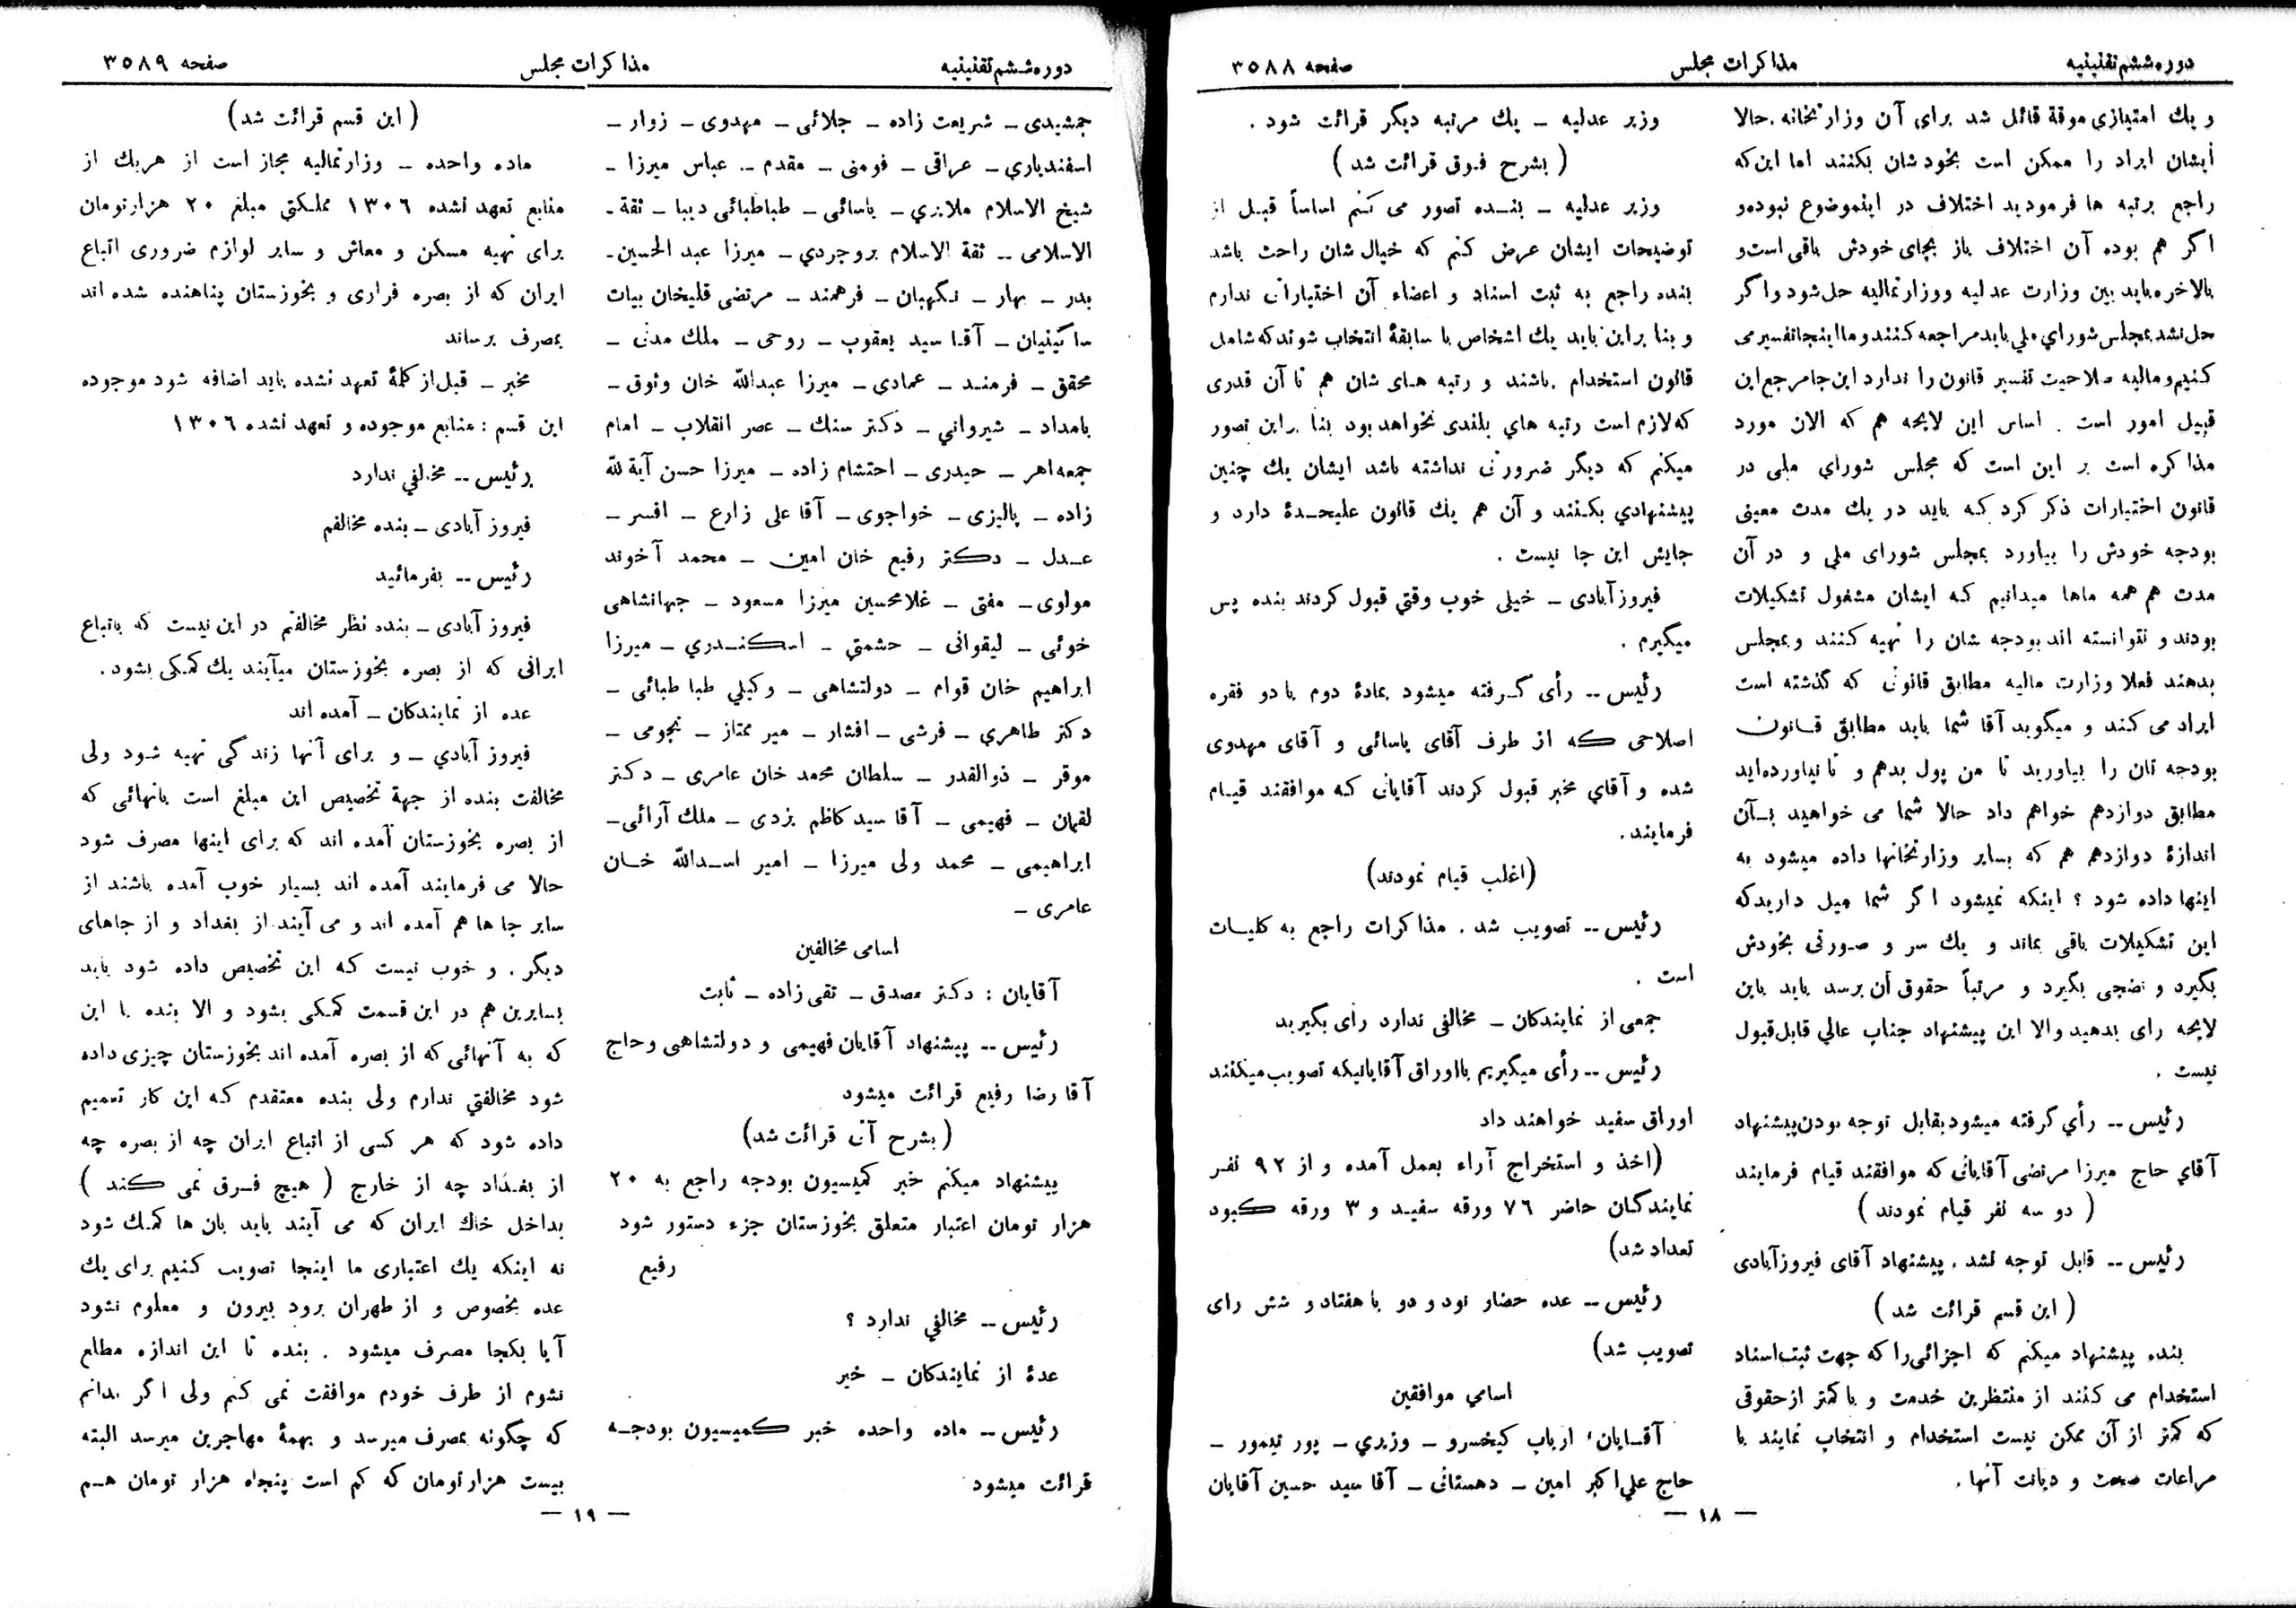 دوره ششم تقنینیه
مذاکرات مجلس
صفحه ۳۵۸۸
و یك امتیازي موقة قائل شد برای آن وزارتخانه. حالا
ایشان ایراد را ممکن است بخودشان بکنند اما این که
راجع برتبه ها فرمودید اختلاف در اینموضوع نبوده و
اگر هم بوده آن اختلاف باز بجای خودش باقی است و
بالاخره باید بین وزارت عدلیه و وزارتمالیه حل شود و اگر
حل نشد بمجلس شورای ملي باید مراجعه کنند و ما اینجا تفسیر می
کنیم و مالیه صلاحیت تفسیر قانون را ندارد این جا مرجع این
قبیل امور است . اساس این لایحه هم که الان مورد
مذاکره است بر این است که مجلس شورای ملی در
قانون اختیارات ذکر کرد که باید در یك مدت معینی
بودجه خودش را بیاورد بمجلس شورای ملی و در آن
مدت هم همه ماها میدانیم که ایشان مشغول تشکیلات
بودند و نتوانسته اند بودجه شان را تهیه کنند و بمجلس
بدهند فعلا وزارت مالیه مطابق قانونی که گذشته است
ایراد می کند و میگوید آقا شما باید مطابق قانون
بودجه تان را بیاورید تا من پول بدهم و تا نیاورده اید
مطابق دوازدهم خواهم داد حالا شما می خواهید بآن
اندازهٔ دوازدهم هم که بسایر وزارتخانها داده میشود به
اینها داده شود ؟ اینکه نمیشود اگر شما میل دارید که
این تشکیلات باقی بماند و یك سر و صورتی بخودش
بگیرد و نضجی بگیرد و مرتباً حقوق آن برسد باید باین
لایحه رای بدهید والا این پیشنهاد جناب عالي قابل قبول
نیست .
رئیس -- رأي گرفته میشود بقابل توجه بودن پیشنهاد
آقاي حاج میرزا مرتضی آقایانی که موافقند قیام فرمایند
( دو سه نفر قیام نمودند )
رئیس -- قابل توجه نشد . پیشنهاد آقای فیروزآبادی
( این قسم قرائت شد )
بنده پیشنهاد میکنم که اجزائی را که جهت ثبت اسناد
استخدام می کنند از منتظرین خدمت و یا کمتر از حقوقی
که کمتر از آن ممکن نیست استخدام و انتخاب نمایند با
مراعات صحت و دیانت آنها .
وزیر عدلیه – یك مرتبه دیگر قرائت شود .
( بشرح فوق قرائت شد )
وزیر عدلیه – بنده تصور می کنم اساساً قبل از
توضیحات ایشان عرض کنم که خیال شان راحت باشد
بنده راجع به ثبت اسناد و اعضاء آن اختیاراتی ندارم
و بنا براین باید یك اشخاص با سابقهٔ انتخاب شوند که شامل
قانون استخدام باشند و رتبه های شان هم تا آن قدری
که لازم است رتبه هاي بلندی نخواهد بود بنا براین تصور
میکنم که دیگر ضرورتی نداشته باشد ایشان یك چنین
پیشنهادي بکنند و آن هم یك قانون علیحدهٔ دارد و
جایش این جا نیست .
فیروزآبادی – خیلی خوب وقتي قبول کردند بنده پس
میگیرم .
رئیس -- رأی گرفته میشود بمادهٔ دوم با دو فقره
اصلاحی که از طرف آقای یاسائی و آقای مهدوی
شده و آقاي مخبر قبول کردند آقایانی که موافقند قیام
فرمایند .
(اغلب قیام نمودند)
رئیس -- تصویب شد . مذاکرات راجع به کلیات
است .
جمعی از نمایندگان – مخالفی ندارد رأی بگیرید
رئیس -- رأی میگیریم با اوراق آقایانیکه تصویب میکنند
اوراق سفید خواهند داد
(اخذ و استخراج آراء بعمل آمده و از ۹۲ نفر
نمایندگان حاضر ۷۶ ورقه سفید و ۳ ورقه کبود
تعداد شد)
رئیس -- عده حضار نود و دو با هفتاد و شش رای
تصویب شد)
اسامي موافقین
آقایان، ارباب کیخسرو – وزیري – پور تیمور –
حاج علي اکبر امین – دهستانی – آقا سید حسین آقایان
— ۱۸ —
دوره ششم تقنینیه
مذاکرات مجلس
صفحه ۳۵۸۹
جمشیدی – شریعت زاده – جلائی – مهدوی – زوار –
اسفندیاري – عراقی – فومنی – مقدم – عباس میرزا –
شیخ الاسلام ملایري – یاسائی – طباطبائی دیبا – ثقة-
الاسلامی -- ثقة الاسلام بروجردي – میرزا عبد الحسین-
بدر – بهار – نگهبان – فرهمند – مرتضی قلیخان بیات
ساکینیان – آقا سید یعقوب – روحی – ملك مدنی –
محقق – فرمند – عمادی – میرزا عبدالله خان وثوق –
بامداد – شیرواني – دکتر سنك – عصر انقلاب – امام
جمعه اهر – حیدری – احتشام زاده – میرزا حسن آیة لله
زاده – پالیزی – خواجوی – آقا علی زارع – افسر –
عدل – دکتر رفیع خان امین – محمد آخوند
مولوی – مفتی – غلامحسین میرزا مسعود – جهانشاهی
خوئی – لیقوانی – حشمتی – اسکندري – میرزا
ابراهیم خان قوام – دولتشاهی – وکیلي طباطبائی –
دکتر طاهري – فرشی – افشار – میر ممتاز – نجومی –
موقر – ذوالقدر – سلطان محمد خان عامری – دکتر
لقمان – فهیمی – آقا سید کاظم یزدی – ملك آرائی –
ابراهیمی – محمد ولی میرزا – امیر اسدالله خان
عامری –
اسامی مخالفین
آقایان : دکتر مصدق – تقی زاده – ثابت
رئیس -- پیشنهاد آقایان فهیمی و دولتشاهی و حاج
آقا رضا رفیع قرائت میشود
( بشرح آتی قرائت شد)
پیشنهاد میکنم خبر کمیسیون بودجه راجع به ۲۰
هزار تومان اعتبار متعلق بخوزستان جزء دستور شود
رفیع
رئیس -- مخالفي ندارد ؟
عدهٔ از نمایندگان – خیر
رئیس -- ماده واحده خبر کمیسیون بودجه
قرائت میشود
( این قسم قرائت شد)
ماده واحده – وزارتمالیه مجاز است از هریك از
منابع تعهد نشده ۱۳۰۶ مملکتي مبلغ ۲۰ هزارتومان
برای تهیه مسکن و معاش و سایر لوازم ضروری اتباع
ایران که از بصره فراری و بخوزستان پناهنده شده اند
بمصرف برساند
مخبر – قبل از کلمهٔ تعهد نشده باید اضافه شود موجوده
این قسم : منابع موجوده و تعهد نشده ۱۳۰۶
رئیس -- مخالفي ندارد
فیروز آبادی – بنده مخالفم
رئیس -- بفرمائید
فیروز آبادی – بنده نظر مخالفتم در این نیست که باتباع
ایرانی که از بصره بخوزستان میآیند یك کمکی بشود .
عده از نمایندکان – آمده اند
فیروز آبادي – و برای آنها زندگی تهیه شود ولی
مخالفت بنده از جهة تخصیص این مبلغ است بانهائی که
از بصره بخوزستان آمده اند که برای اینها مصرف شود
حالا می فرمایند آمده اند بسیار خوب آمده باشند از
سایر جا ها هم آمده اند و می آیند از بغداد و از جاهای
دیگر . و خوب نیست که این تخصیص داده شود باید
بسایرین هم در این قسمت کمکی بشود و الا بنده با این
که به آنهائی که از بصره آمده اند بخوزستان چیزی داده
شود مخالفتي ندارم ولی بنده معتقدم که این کار تعمیم
داده شود که هر کسی از اتباع ایران چه از بصره چه
از بغداد چه از خارج ( هیچ فرق نمی کند )
بداخل خاك ایران که می آیند باید بان ها کمك شود
نه اینکه یك اعتباری ما اینجا تصویب کنیم برای یك
عده بخصوص و از طهران برود بیرون و معلوم نشود
آیا بکجا مصرف میشود . بنده تا این اندازه مطلع
نشوم از طرف خودم موافقت نمی کنم ولی اگر بدانم
که چگونه بمصرف میرسد و بهمهٔ مهاجرین میرسد البته
بیست هزار تومان که کم است پنجاه هزار تومان هم
— ۱۹ —